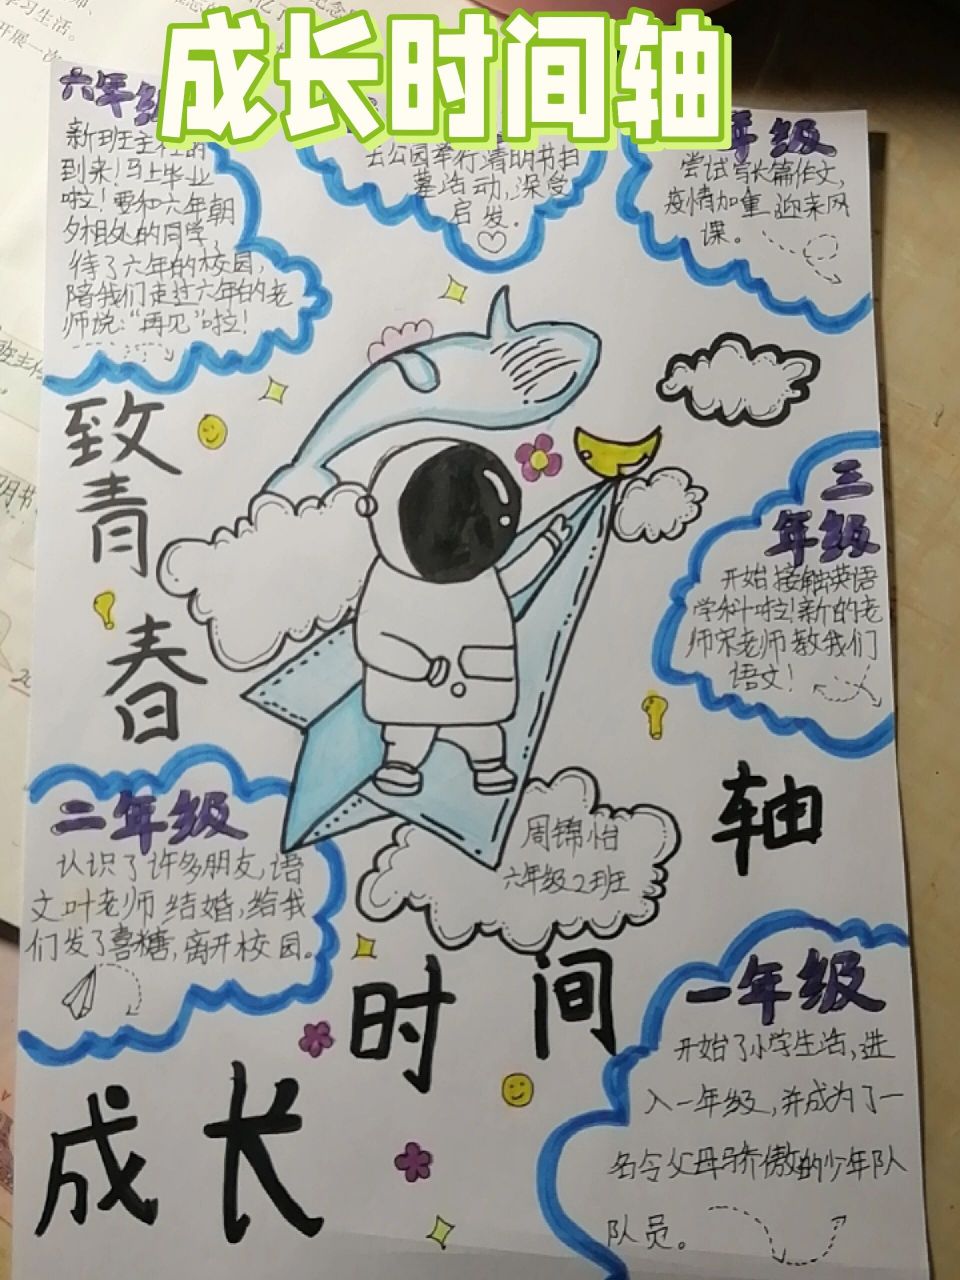 成长时间轴
六年级
新班主任的
到来！马上毕业
啦！要和六年朝
夕相处的同学，
待了六年的校园，
陪我们走过六年的老
师说：“再见”啦！
去公园举行清明节扫
墓活动，深受
启发。
年级
尝试写长篇作文，
疫情加重，迎来网
课。
三
年级
开始接触英语
学科啦！新的老
师宋老师教我们
语文！
致青春
二年级
认识了许多朋友，语
文叶老师结婚，给我
们发了喜糖，离开校园。
周锦怡
六年级2班
一年级
开始了小学生活，进
入一年级，并成为了一
名令父母骄傲的少年队
队员。
成长时间轴